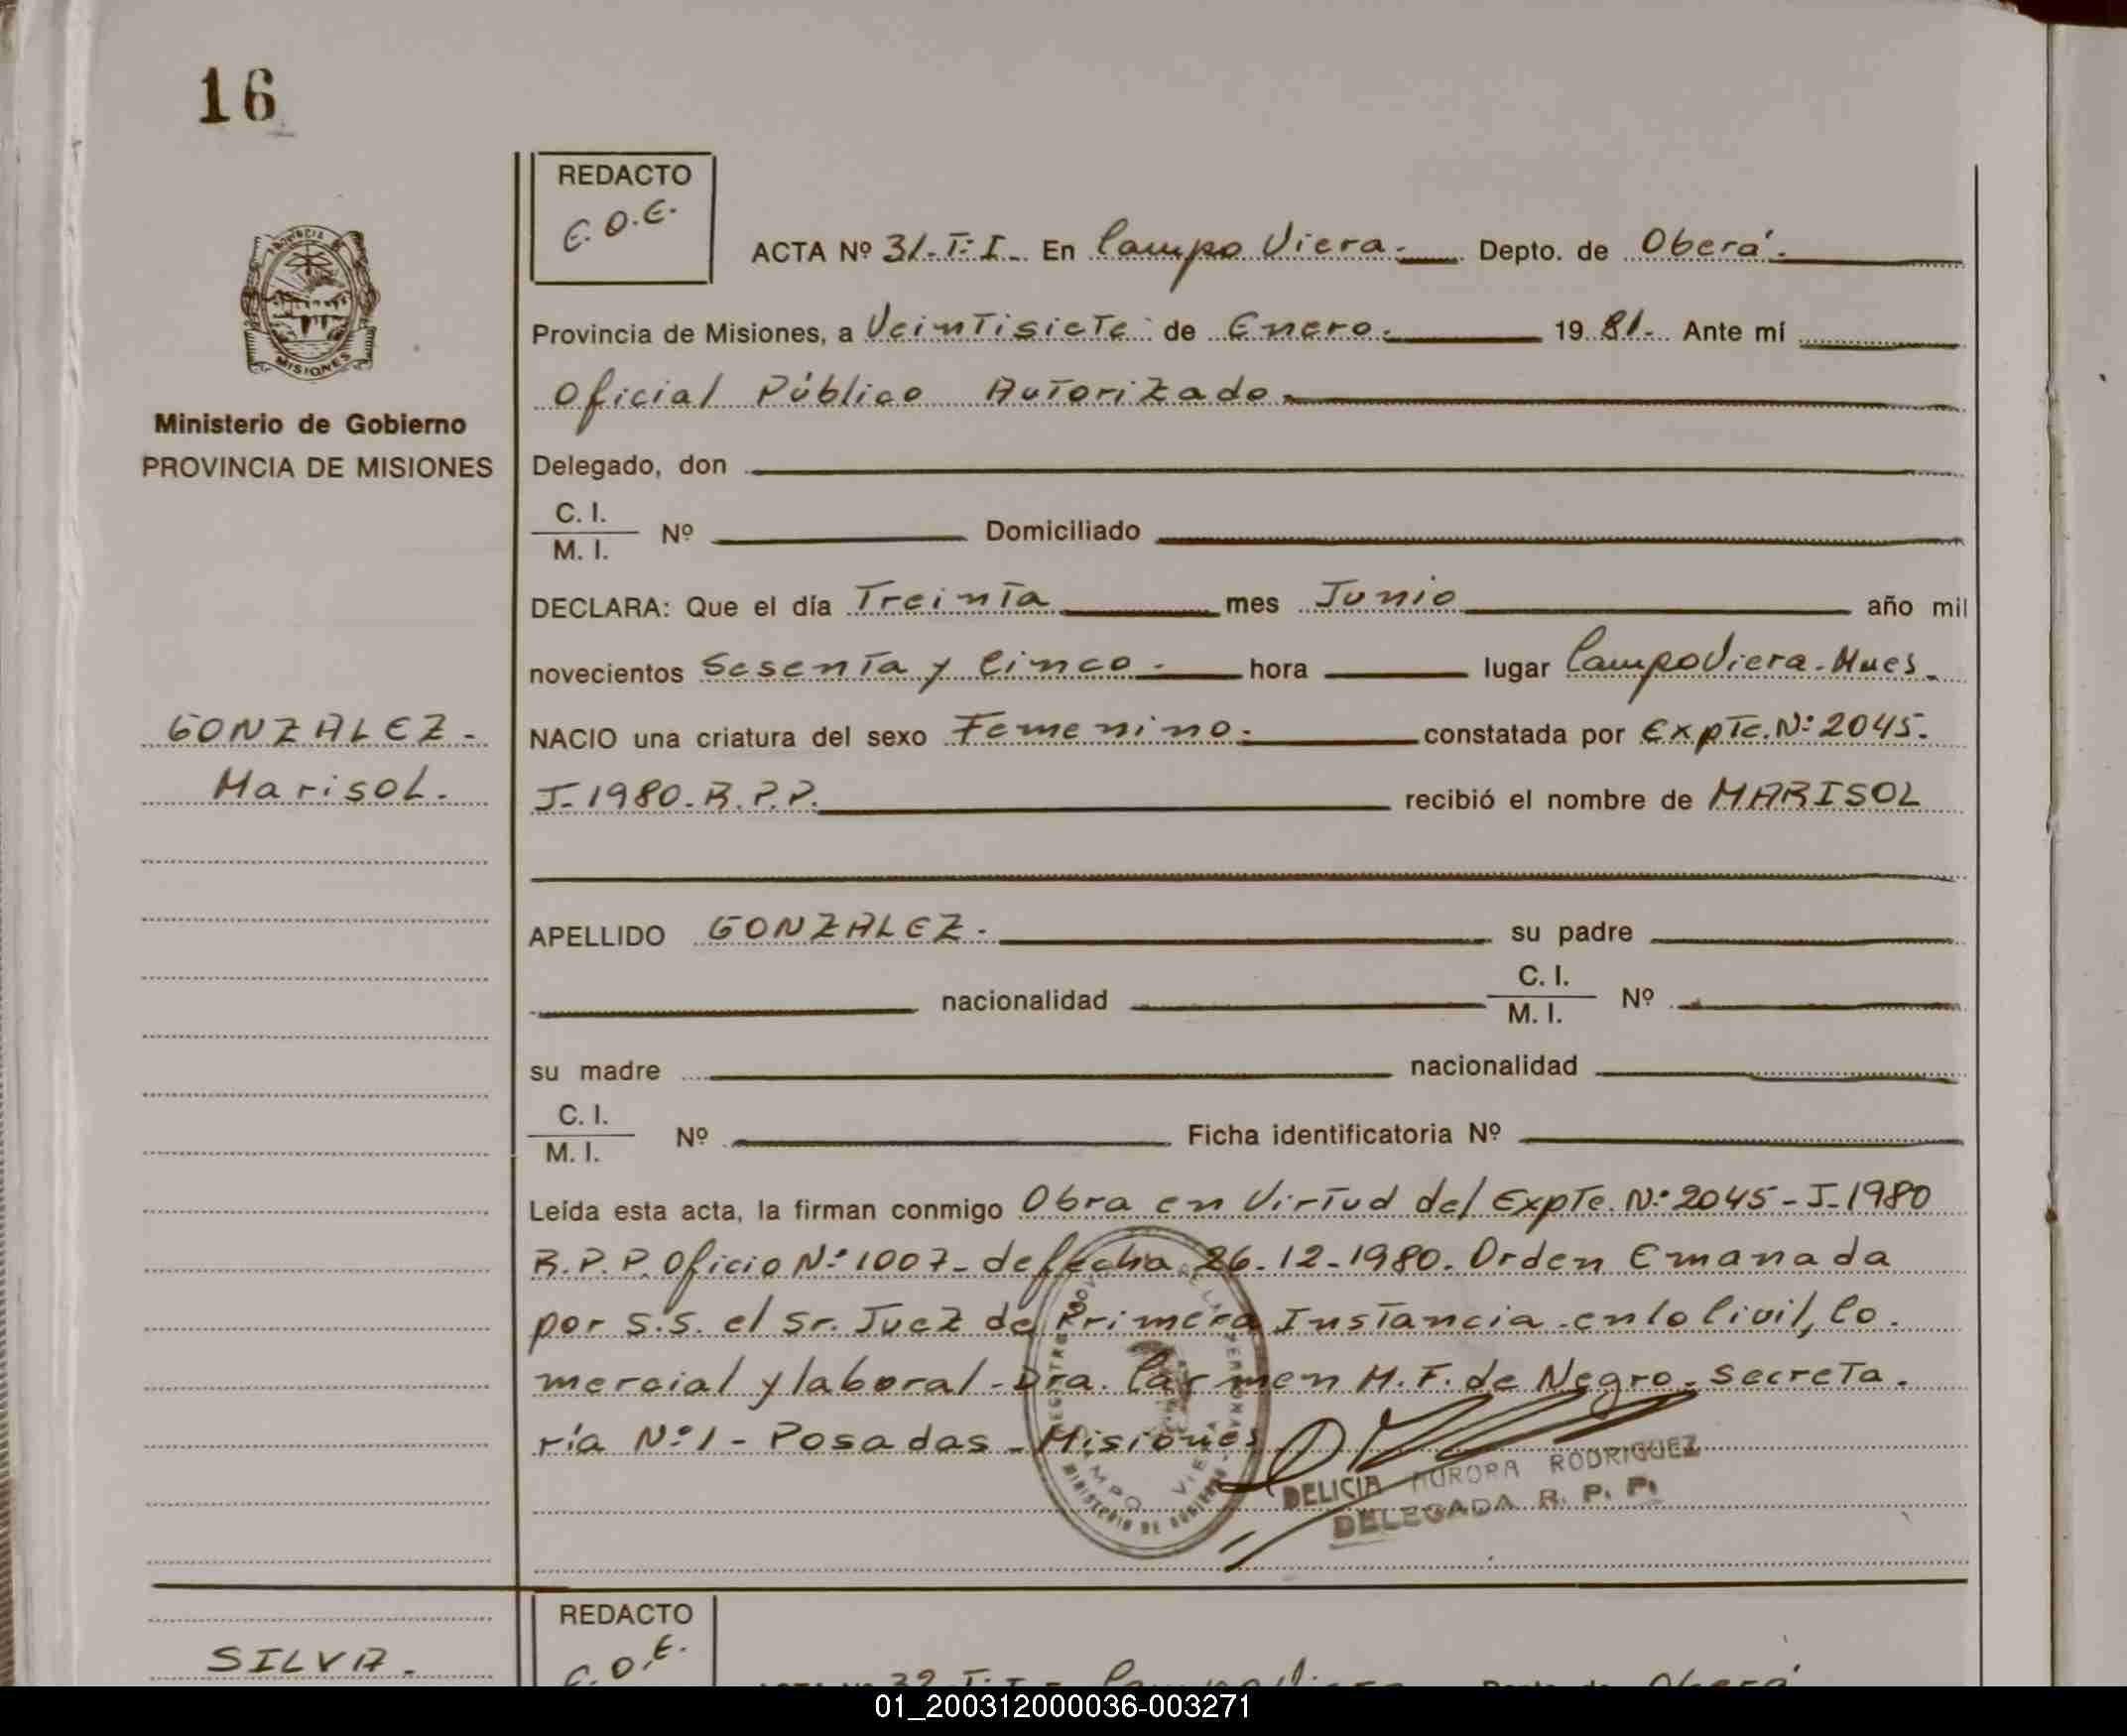 16
REDACTO
E.O.E.
PROVINCIA DE
MISIONES
Ministerio de Gobierno
PROVINCIA DE MISIONES
ACTA Nº 31-T:I- En Campo Viera.- Depto. de Oberá.-
Provincia de Misiones, a Veintisiete de Enero.- 19 81.- Ante mí
Oficial Público Autorizado.-
Delegado, don
C. I.
M. I. Nº Domiciliado
DECLARA: Que el día Treinta mes Junio año mil
novecientos Sesenta y Cinco.- hora lugar Campo Viera.
GONZALEZ.-
NACIO una criatura del sexo Femenino.- constatada por Expte. Nº 2045.-
Marisol.
J-1980-R.P.P. recibió el nombre de MARISOL
APELLIDO GONZALEZ.- su padre
nacionalidad C. I.
M. I. Nº
su madre nacionalidad
C. I.
M. I. Nº Ficha identificatoria Nº
Leída esta acta, la firman conmigo Obra en Virtud del Expte. Nº 2045-J-1980
R.P.P. Oficio Nº 1007- de fecha 26-12-1980. Orden Emanada
por S.S. el Sr. Juez de Primera Instancia en lo Civil, Co.
mercial y laboral-Dra. Carmen M.F. de Negro. Secreta.
ría Nº 1 - Posadas - Misiones
DELICIA AURORA RODRIGUEZ
DELEGADA R. P. P.
MINISTERIO DE GOBIERNO
REDACTO
E.O.E.
SILVA.
ACTA Nº 32-T:I- Campo Viera Depto. de Oberá
01_200312000036-003271